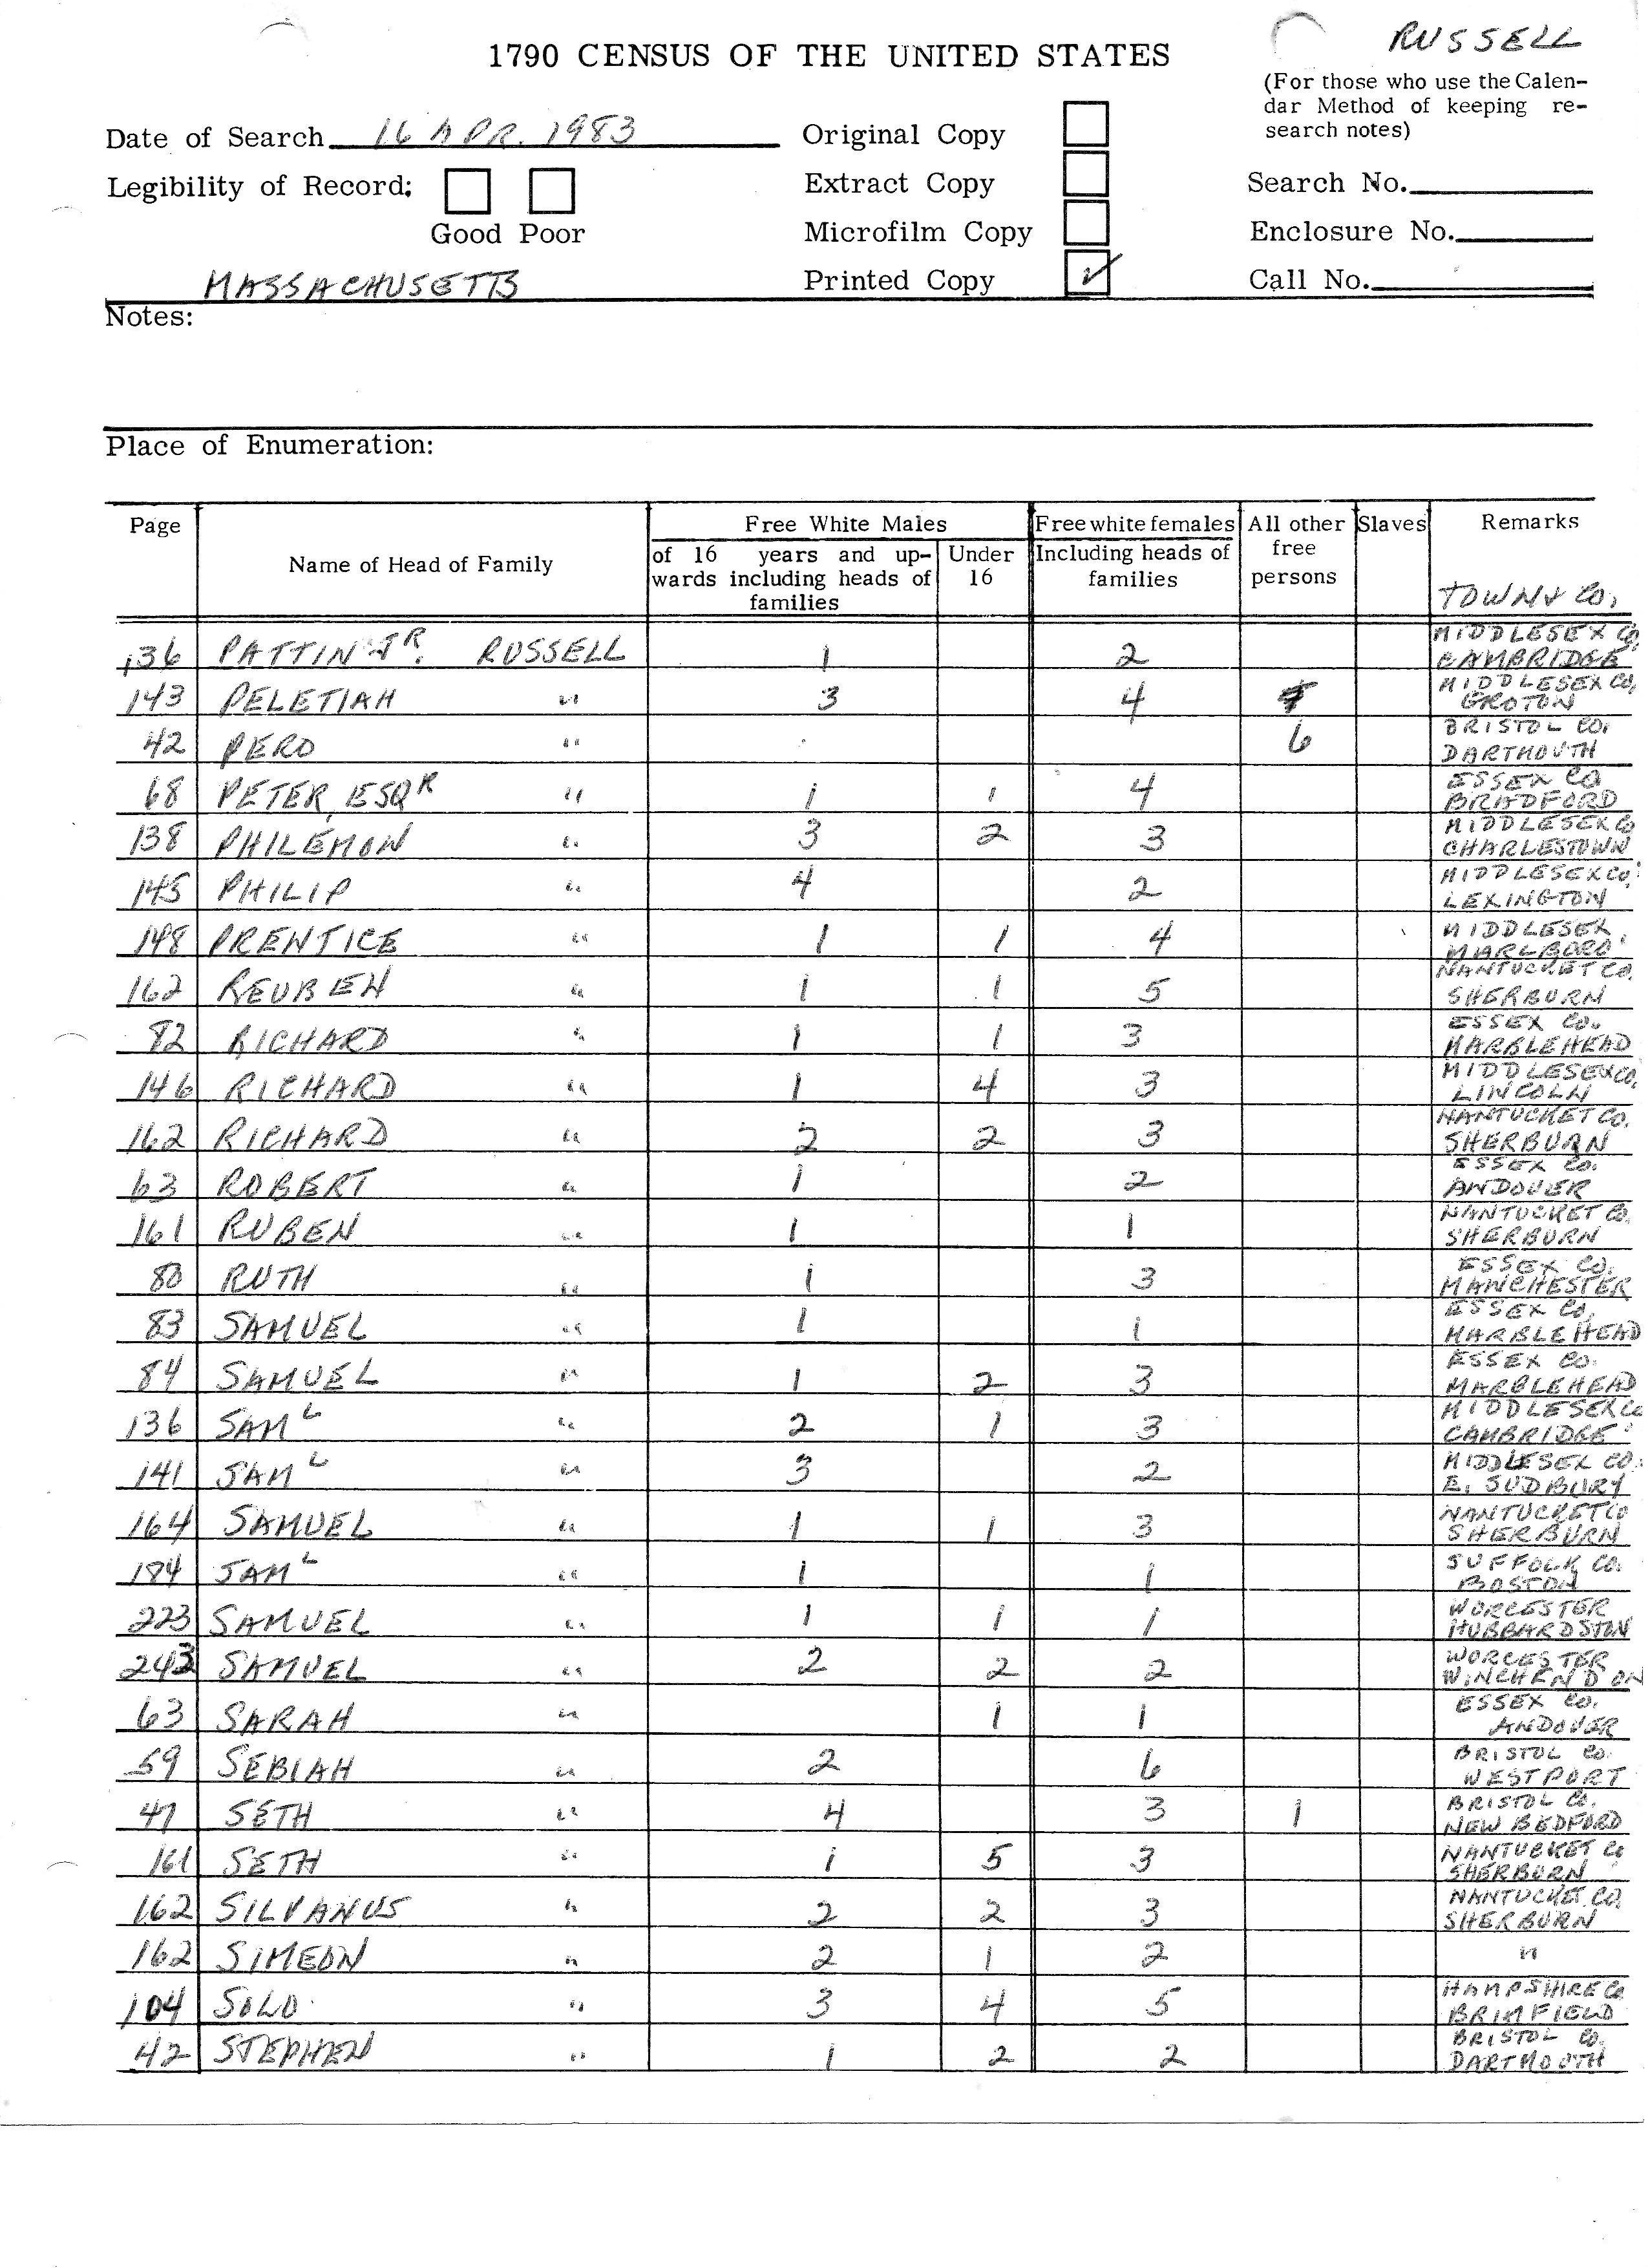 RUSSELL
1790 CENSUS OF THE UNITED STATES
(For those who use the Calen-
dar Method of keeping re-
search notes)
Date of Search 16 APR. 1983
Original Copy
Legibility of Record;
Extract Copy
Search No.
Good Poor
Microfilm Copy
Enclosure No.
MASSACHUSETTS
Printed Copy ✓
Call No.
Notes:
Place of Enumeration:
Page Name of Head of Family Free White Males Free white females All other free persons Slaves Remarks
of 16 years and up-wards including heads of families Under 16 Including heads of families TOWN & CO.
136 PATTIN JR. RUSSELL 1 2 MIDDLESEX CO CAMBRIDGE
143 PELETIAH " 3 4 MIDDLESEX CO, GROTON
42 PERO " 6 BRISTOL CO. DARTMOUTH
68 PETER, ESQR " 1 1 4 ESSEX CO BRADFORD
138 PHILEMON " 3 2 3 MIDDLESEX CO CHARLESTOWN
145 PHILIP " 4 2 MIDDLESEX CO. LEXINGTON
148 PRENTICE " 1 1 4 MIDDLESEX MARLBORO
162 REUBEN " 1 1 5 NANTUCKET CO. SHERBURN
82 RICHARD " 1 1 3 ESSEX CO. MARBLEHEAD
146 RICHARD " 1 4 3 MIDDLESEX CO, LINCOLN
162 RICHARD " 2 2 3 NANTUCKET CO. SHERBURN
63 ROBERT " 1 2 ESSEX CO. ANDOVER
161 RUBEN " 1 1 NANTUCKET CO. SHERBURN
80 RUTH " 1 3 ESSEX CO. MANCHESTER
83 SAMUEL " 1 1 ESSEX CO, MARBLEHEAD
84 SAMUEL " 1 2 3 ESSEX CO. MARBLEHEAD
136 SAML " 2 1 3 MIDDLESEX CO CAMBRIDGE
141 SAML " 3 2 MIDDLESEX CO. E. SUDBURY
164 SAMUEL " 1 1 3 NANTUCKET CO SHERBURN
184 SAML " 1 1 SUFFOLK CO. BOSTON
223 SAMUEL " 1 1 1 WORCESTER HUBBARDSTON
243 SAMUEL " 2 2 2 WORCESTER WINCHENDON
63 SARAH " 1 1 ESSEX CO. ANDOVER
59 SEBIAH " 2 6 BRISTOL CO. WESTPORT
47 SETH " 4 3 1 BRISTOL CO. NEW BEDFORD
161 SETH " 1 5 3 NANTUCKET CO SHERBURN
162 SILVANUS " 2 2 3 NANTUCKET CO. SHERBURN
162 SIMEON " 2 1 2 "
104 SOLO. " 3 4 5 HAMPSHIRE CO BRIMFIELD
42 STEPHEN " 1 2 2 BRISTOL CO. DARTMOUTH